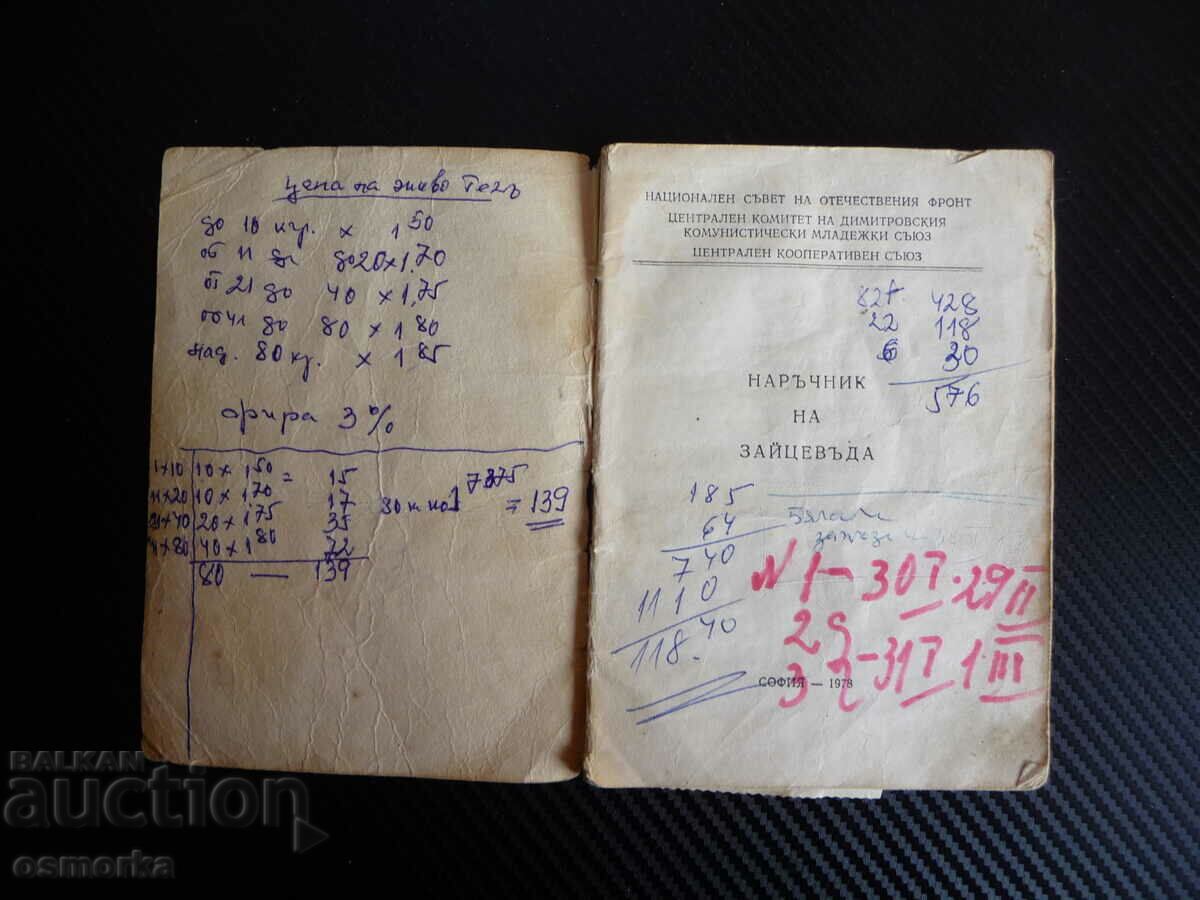 цена на живо тегъ
до 10 кгр. x 1 50
от 11 до до 20 x 1,70
от 21 до 40 x 1,75
от 41 до 80 x 1 80
над. 80 кг. x 1 85
фира 3%
1x10 10 x 1 50 = 15
11x20 10 x 1 70 17
21x40 20 x 1 75 35
41x80 40 x 1 80 72
80 — 139
80 к по 1 7375 = 139
НАЦИОНАЛЕН СЪВЕТ НА ОТЕЧЕСТВЕНИЯ ФРОНТ
ЦЕНТРАЛЕН КОМИТЕТ НА ДИМИТРОВСКИЯ
КОМУНИСТИЧЕСКИ МЛАДЕЖКИ СЪЮЗ
ЦЕНТРАЛЕН КООПЕРАТИВЕН СЪЮЗ
82 428
22 118
6 30
576
НАРЪЧНИК
НА
ЗАЙЦЕВЪДА
185
64
740
1110
118.40
N 1 – 30 I · 29 II
2
3 – 31 I 1 III
СОФИЯ — 1978
BALKAN
auction
osmorka